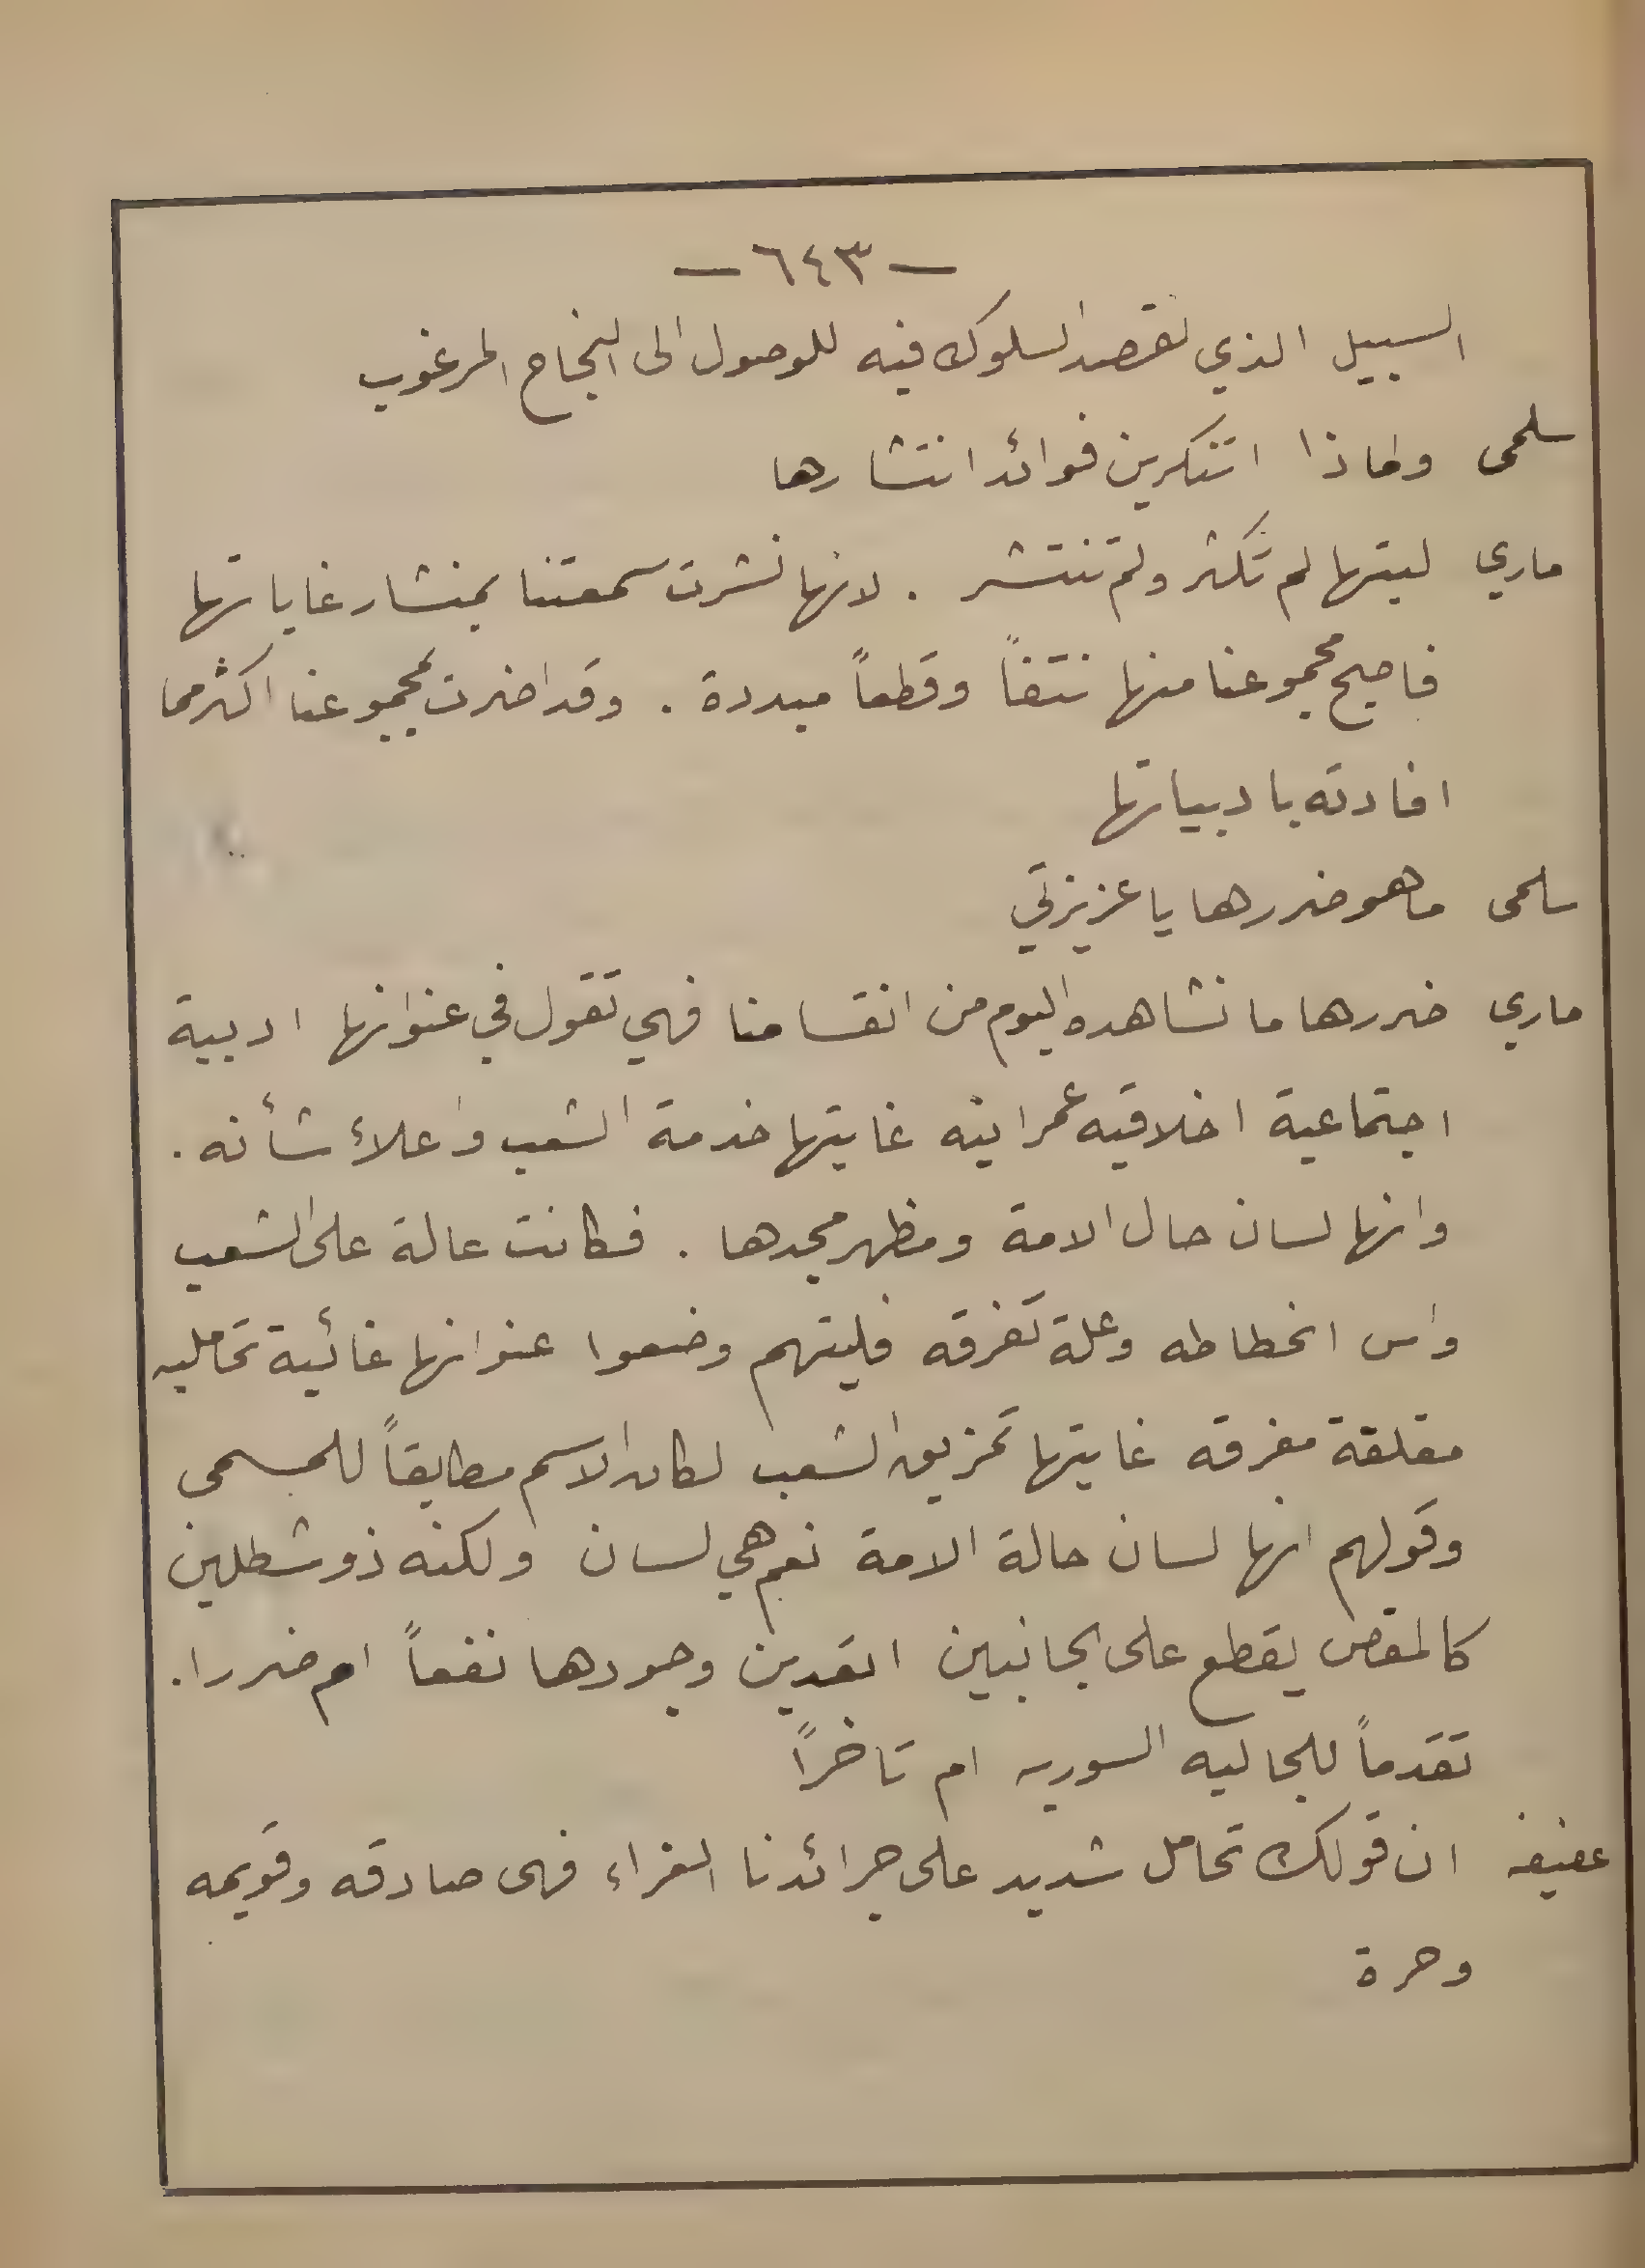 — ٦٤٣ —
السبيل الذي نقصد السلوك فيه للوصول الى النجاح المرغوب
سلمى ولماذا اتنكرين فوائد انتشارها
ماري ليتها لم تكثر ولم تنتشر . لانها نشرت سمعتنا بمنشار غاياتها
فاصبح مجموعنا منها نتفاً وقطعاً مبددة . وقد اضرت بمجموعنا اكثر مما
افادته بادبياتها
سلمى ما هو ضررها يا عزيزتي
ماري ضررها ما نشاهده اليوم من انقسامنا فهي تقول في عنوانها ادبية
اجتماعية اخلاقيه عمرانيه غايتها خدمة الشعب واعلاء شأنه .
وانها لسان حال الامة ومظهر مجدها . فكانت عالة على الشعب
واس انحطاطه وعلة تفرقه فليتهم وضعوا عنوانها غائية تحامليه
مقلقة مفرقه غايتها تمزيق الشعب لكان الاسم مطابقاً للمسمى
وقولهم انها لسان حالة الامة نعم هي لسان ولكنه ذو شطلين
كالمقص يقطع على الجانبين اتعدين وجودها نفعاً ام ضررا .
تقدماً للجاليه السوريه ام تاخراً
عفيفه ان قولك تحامل شديد على جرائدنا الغراء فهى صادقه وقويمه
وحرة